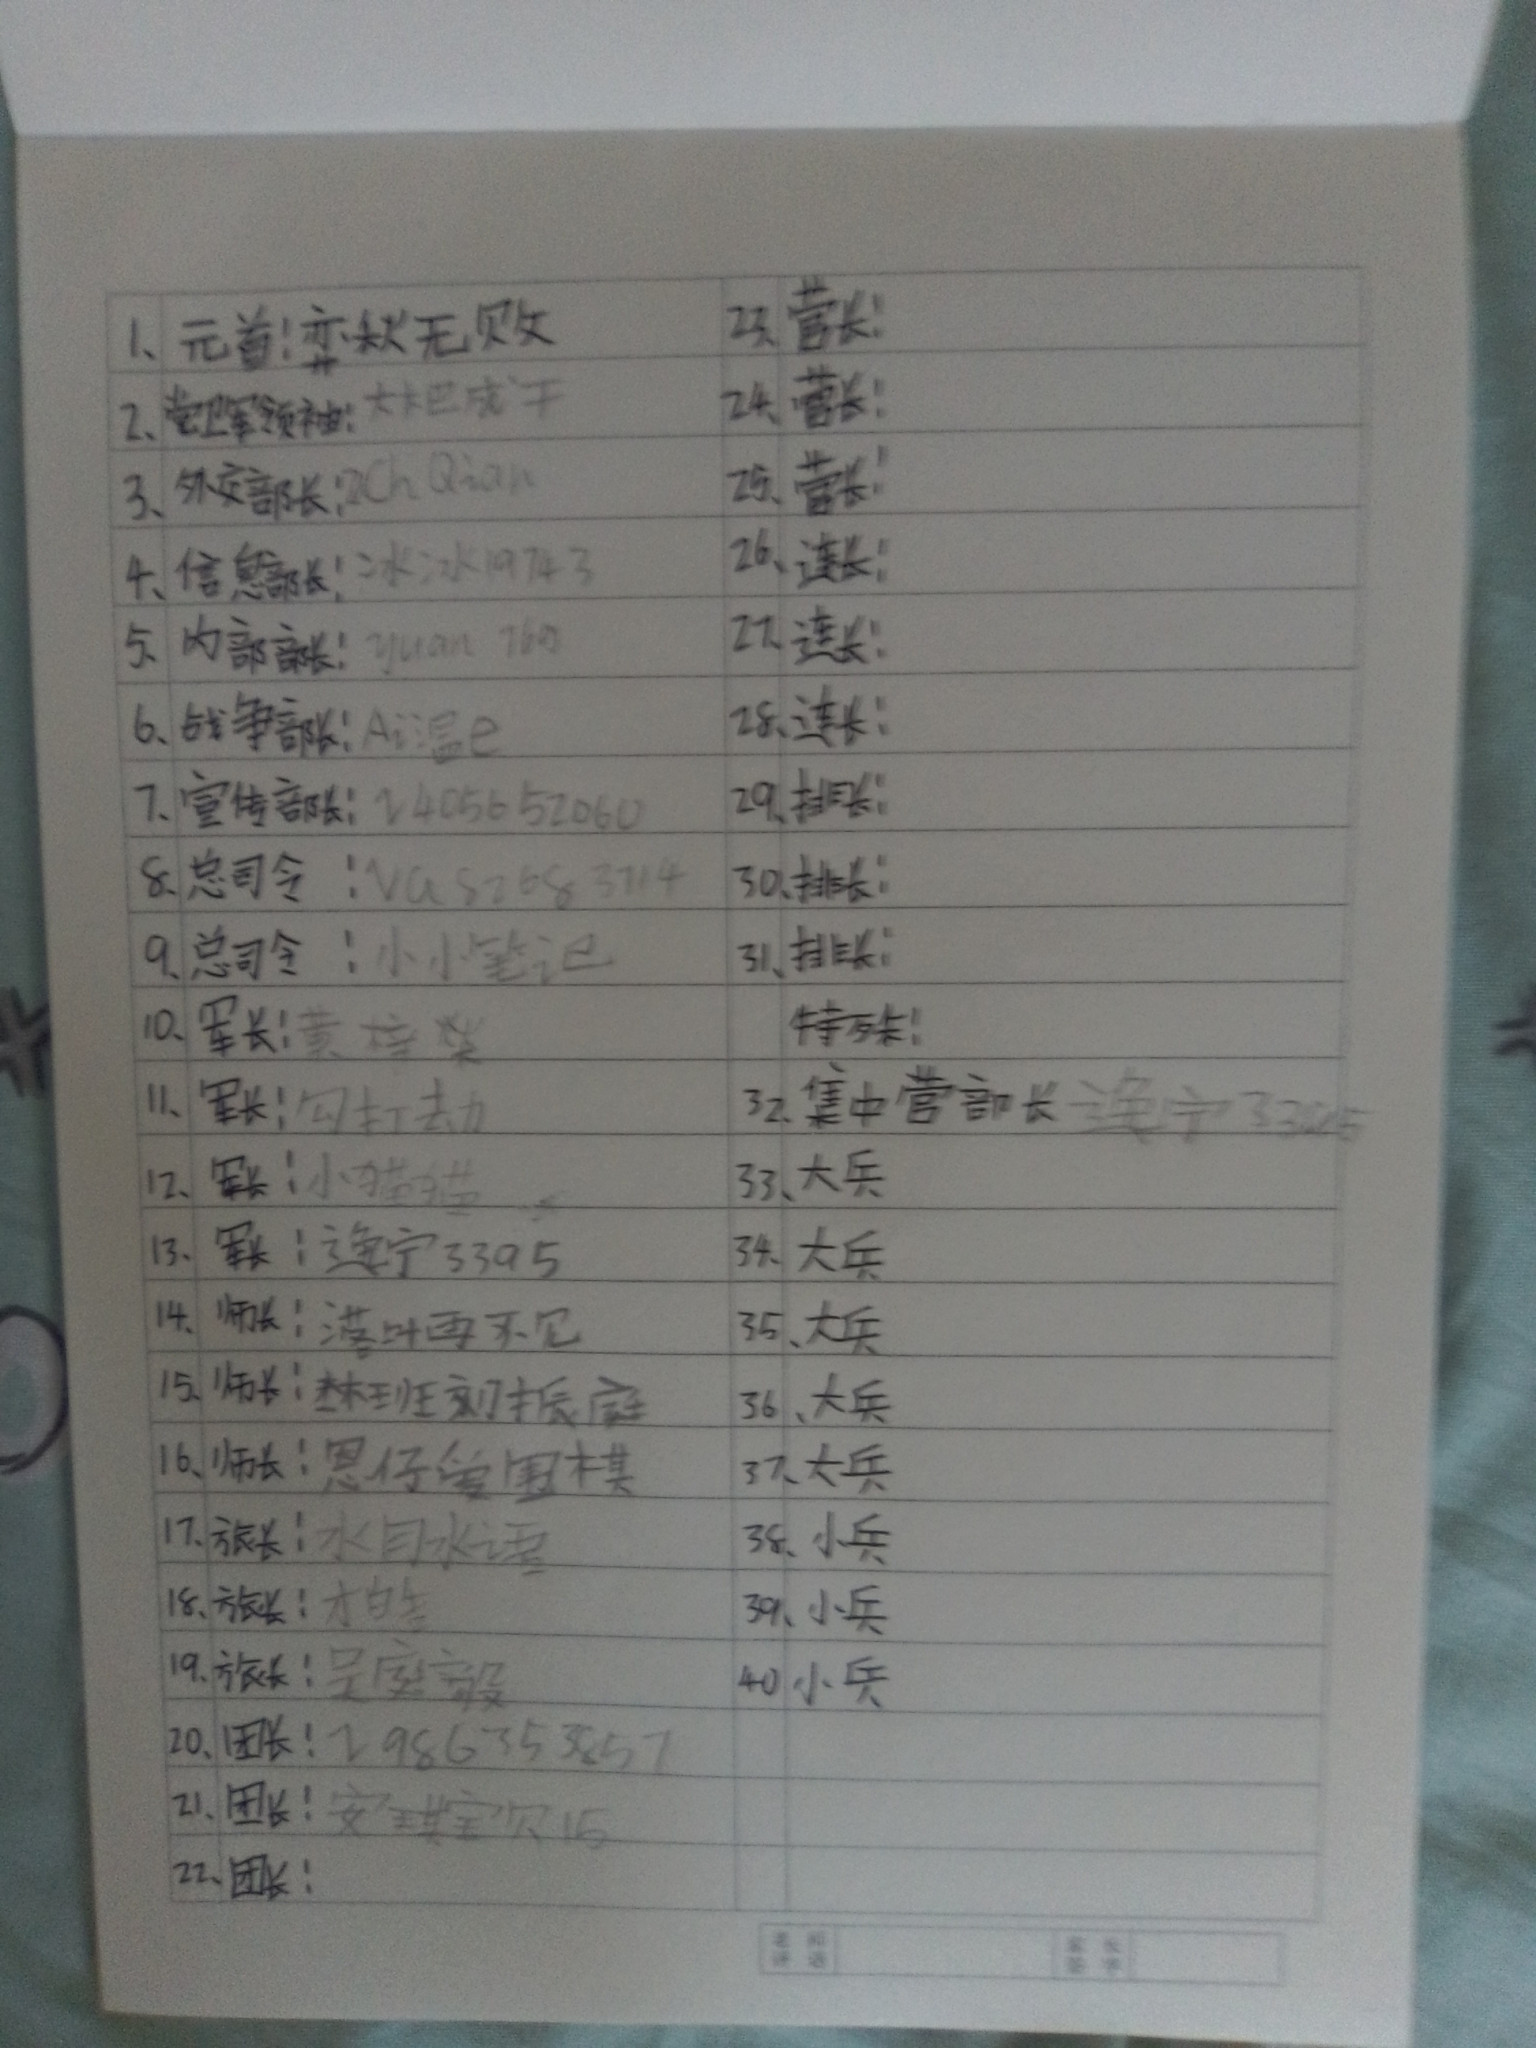 1、元首:弈秋无败
2、党卫军领袖:
3、外交部长:ZChQian
4、信息部长:冰冰19743
5、内部部长:yuan 760
6、战争部长:Ai温e
7、宣传部长:2405652060
8、总司令:
9、总司令:小小笔记
10、军长:黄梓
11、军长:勾打劫
12、军长:小猫猫
13、军长:逸宁3395
14、师长:落叶再不见
15、师长:林班刻振庭
16、师长:恩仔爱围棋
17、旅长:水目水语
18、旅长:
19、旅长:吴庭毅
20、团长:2986353857
21、团长:安琪宝贝15
22、团长:
23、营长:
24、营长:
25、营长:
26、连长:
27、连长:
28、连长:
29、排长:
30、排长:
31、排长:
特殊:
32、集中营部长 逸宁3395
33、大兵
34、大兵
35、大兵
36、大兵
37、大兵
38、小兵
39、小兵
40 小兵
老师评语
家长签字